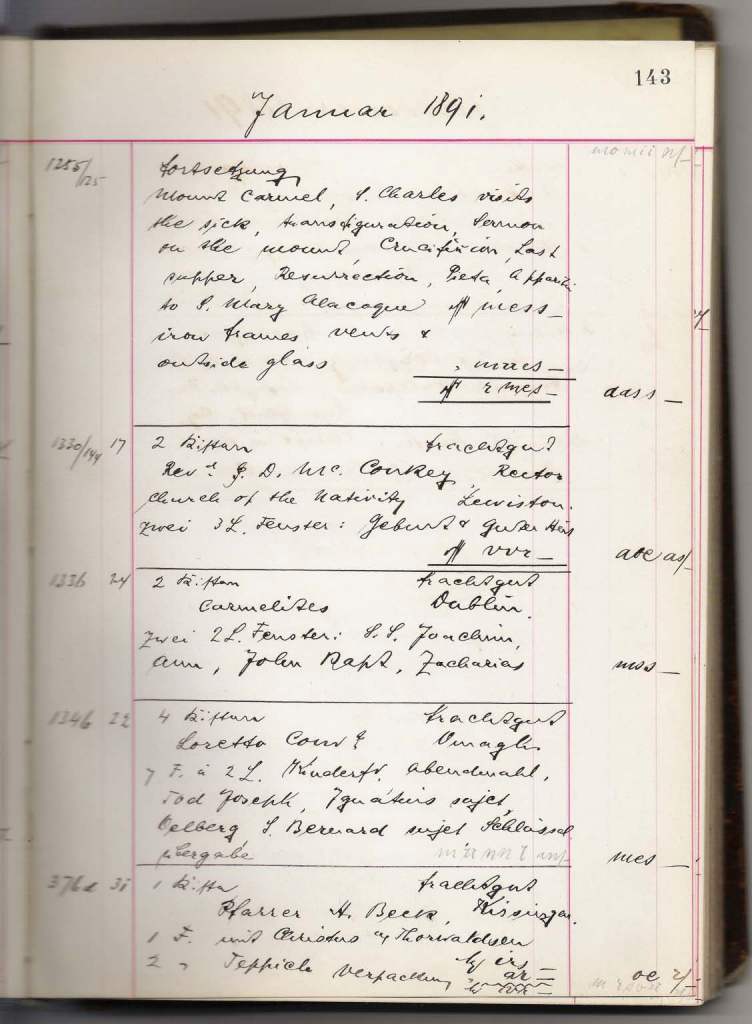 143
Januar 1891.
1255/125 Fortsetzung
Mount Carmel, S. Charles visits
the sick, transfiguration, Sermon
on the mount, Crucifixion, Last
supper, Resurrection, Pieta, Appariti
to S. Mary Alacoque mess —
iron frames vents &
outside glass
mes — dass —
1330/144 17 2 Kisten Frachtgut
Revd J. D. Mc. Conkey, Rector
Church of the Nativity Lewiston.
zwei 3 L. Fenster: Geburt & guter Hirt
vvr — aoe as/-
1336 24 2 Kisten Frachtgut
Carmelites Dublin.
zwei 2 L. Fenster: S. S. Joachim,
Ann, John Bapt, Zacharias mss —
1346 22 4 Kisten Frachtgut
Loretto Convt Omagh.
7 F. à 2 L. Kinderfr. Abendmahl,
Tod Joseph, Ignatius sujet,
Oelberg S. Bernard sujet Schlüssel
übergabe mes —
376d 31 1 Kiste Frachtgut
Pfarrer H. Beck, Kissingen.
1 F. mit Christus Thorwaldsen
2 " Teppich Verpackung oe